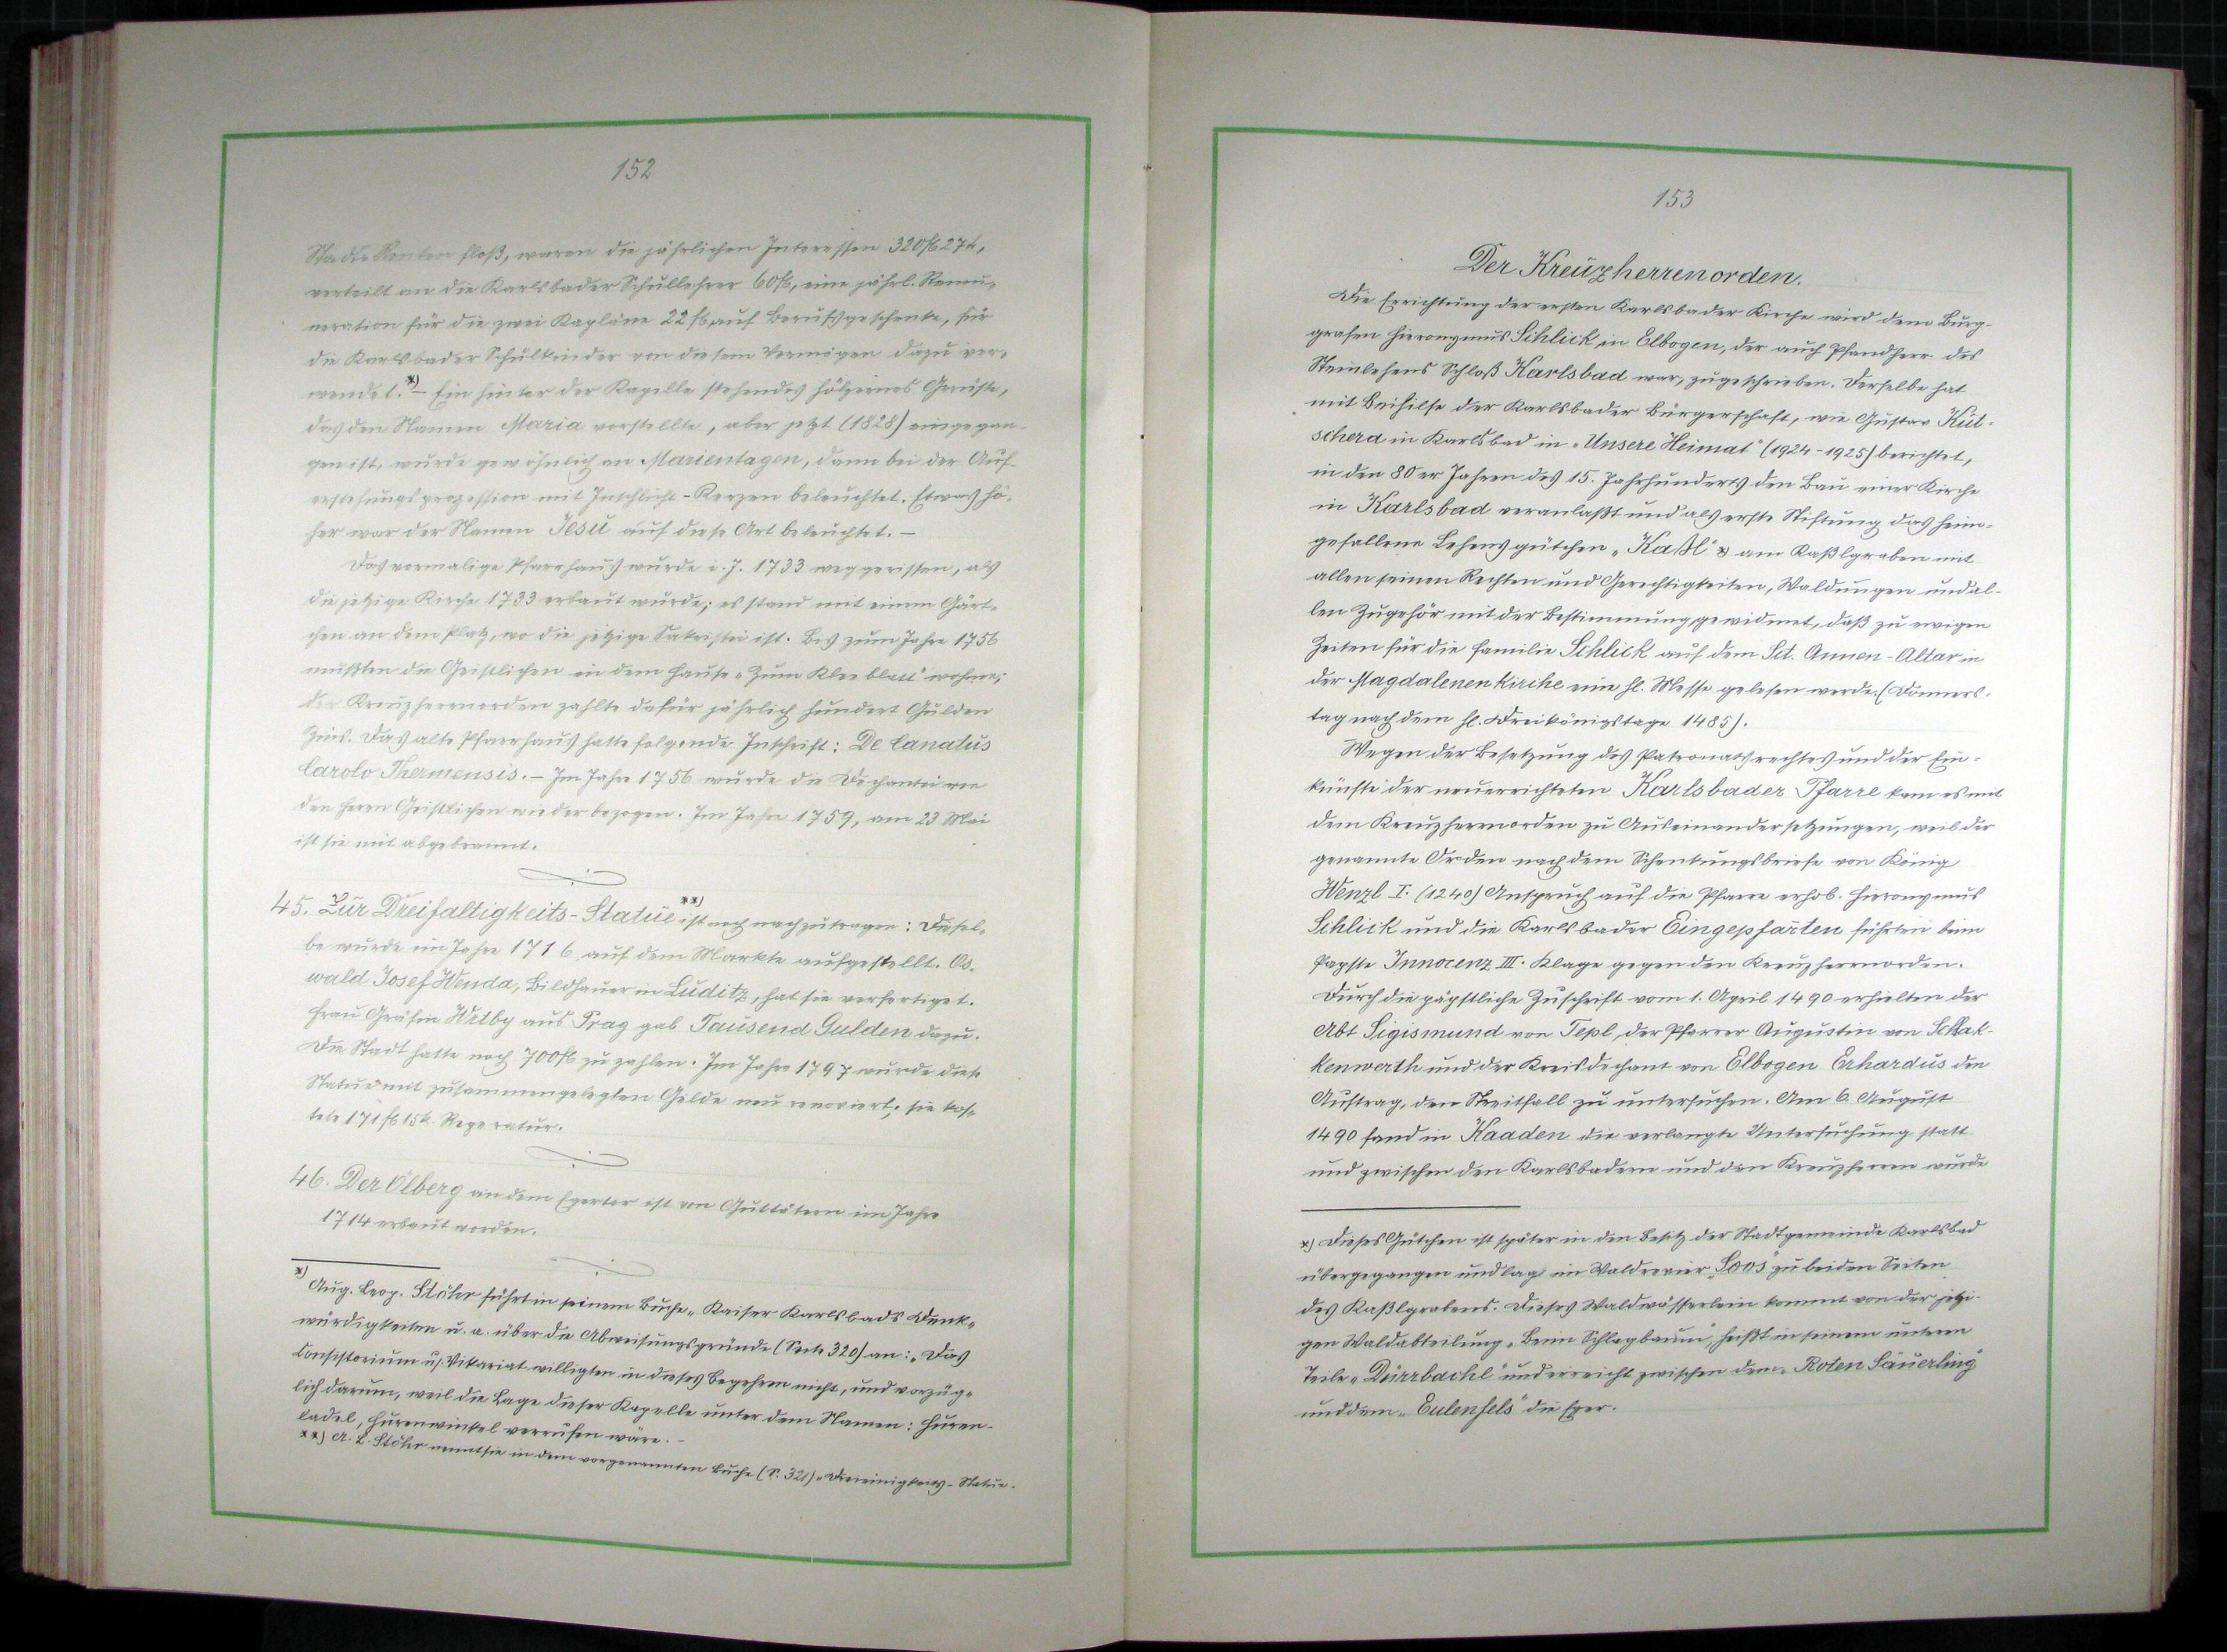 152
Stadt-Renten floß, waren die jährlichen Interessen 320 fl 27 k,
verteilt an die Karlsbader Schullehrer 60 fl, eine jährl. Remu-
neration für die zwei Kapläne 22 fl auf Berufsgeschenke, für
die Karlsbader Schulkinder von diesem Vermögen dazu ver-
wendet.*) – Ein hinter der Kapelle stehendes hölzernes Gerüste,
das den Namen Maria vorstellte, aber jetzt (1828) eingegan-
gen ist, wurde gewöhnlich an Marientagen, dann bei der Auf-
erstehungsprozession mit Inschlicht-Kerzen beleuchtet. Etwas hö-
her war der Namen Jesu auf diese Art beleuchtet. –
Das vormalige Pfarrhaus wurde i. J. 1733 weggerissen, als
die jetzige Kirche 1733 erbaut wurde; es stand mit einem Gärt-
chen an dem Platz, wo die jetzige Sakristei ist. Bis zum Jahre 1756
mußten die Geistlichen in dem Hause „Zum Kleeblatt" wohnen;
der Kreuzherrnorden zahlte dafür jährlich hundert Gulden
Zins. Das alte Pfarrhaus hatte folgende Inschrift: De Canatus
Carolo Thermensis. – Im Jahre 1756 wurde die Dechantei von
den Herrn Geistlichen wieder bezogen. Im Jahre 1759, am 23 Mai
ist sie mit abgebrannt.
45. Zur Dreifaltigkeits-Statue**) ist noch nachzutragen: Diesel-
be wurde im Jahre 1716 auf dem Markte aufgestellt. Os-
wald Josef Wenda, Bildhauer in Luditz, hat sie verfertiget.
Frau Gräfin Wrtby aus Prag gab Tausend Gulden dazu.
Die Stadt hatte noch 700 fl zu zahlen. Im Jahre 1797 wurde diese
Statue mit zusammengelegten Gelde neu renoviert; sie kos-
tete 171 fl 15 k. Reperatur.
46. Der Ölberg an dem Egertor ist von Guttätern im Jahre
1714 erbaut worden.
*) Aug. Leop. Stöhr führt in seinem Buche „Kaiser Karlsbads Denk-
würdigkeiten u. a. über die Abweisungsgründe (Seite 320) an: „Das
Consistorium u. Vikariat willigten in dieses Begehren nicht, und vorzüg-
lich darum, weil die Lage dieser Kapelle unter dem Namen: Huren-
ladel, Hurenwinkel verrufen wäre. –
**) A. L. Stöhr nennt sie in dem vorgenannten Buche (S. 321) „Dreieinigkeits-Statue.
153
Der Kreuzherrenorden.
Die Errichtung der ersten Karlsbader Kirche wird dem Burg-
grafen Hieronymus Schlick in Elbogen, der auch Pfandherr des
Steinlehens Schloß Karlsbad war, zugeschrieben. Derselbe hat
mit Beihilfe der Karlsbader Bürgerschaft, wie Gustav Kut-
schera in Karlsbad in „Unsere Heimat" (1924-1925) berichtet,
in den 80er Jahren des 15. Jahrhunderts den Bau einer Kirche
in Karlsbad veranlaßt und als erste Stiftung das heim-
gefallene Lehensgütchen „Kaßl" *) am Kaßlgraben mit
allen seinen Rechten und Gerechtigkeiten, Waldungen und al-
len Zugehör mit der Bestimmung gewidmet, daß zu ewigen
Zeiten für die Familie Schlick auf dem Sct. Annen-Altar in
der Magdalenenkirche eine hl. Messe gelesen werde. (Donners-
tag nach dem hl. Dreikönigstage 1485).
Wegen der Besetzung des Patronatsrechtes und der Ein-
künfte der neuerrichteten Karlsbader Pfarre kam es mit
dem Kreuzherrnorden zu Auseinandersetzungen, weil der
genannte Orden nach dem Schenkungsbriefe von König
Wenzl I. (1240) Anspruch auf die Pfarre erhob. Hieronymus
Schlick und die Karlsbader Eingepfarten führten beim
Papste Innocenz III. Klage gegen den Kreuzherrnorden.
Durch die päpstliche Zuschrift vom 1. April 1490 erhielten der
Abt Sigismund von Tepl, der Pfarrer Augustin von Schlak-
kenwerth und der Kreisdechant von Elbogen Erhardus den
Auftrag, den Streitfall zu untersuchen. Am 6. August
1490 fand in Kaaden die verlangte Untersuchung statt
und zwischen den Karlsbadern und den Kreuzherren wurde
*) Dieses Gütchen ist später in den Besitz der Stadtgemeinde Karlsbad
übergegangen und lag im Waldrevier „Soos" zu beiden Seiten
des Kaßlgrabens. Dieses Waldwässerlein kommt von der jetzi-
gen Waldabteilung „Beim Schlagbaum", heißt in seinem unteren
Teile „Dürrbachl" und erreicht zwischen dem „Roten Säuerling"
und dem „Eulenfels" die Eger.